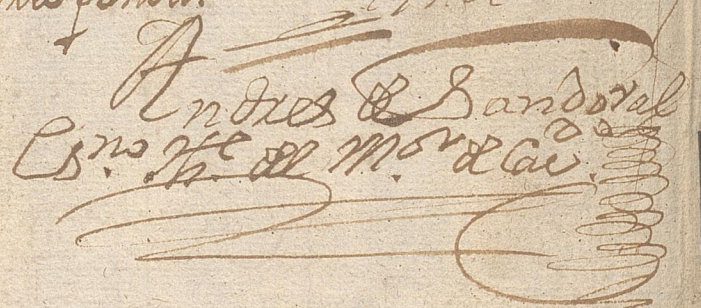 Andres de Sandoval
Es.no Thte del M.or de Cav.do